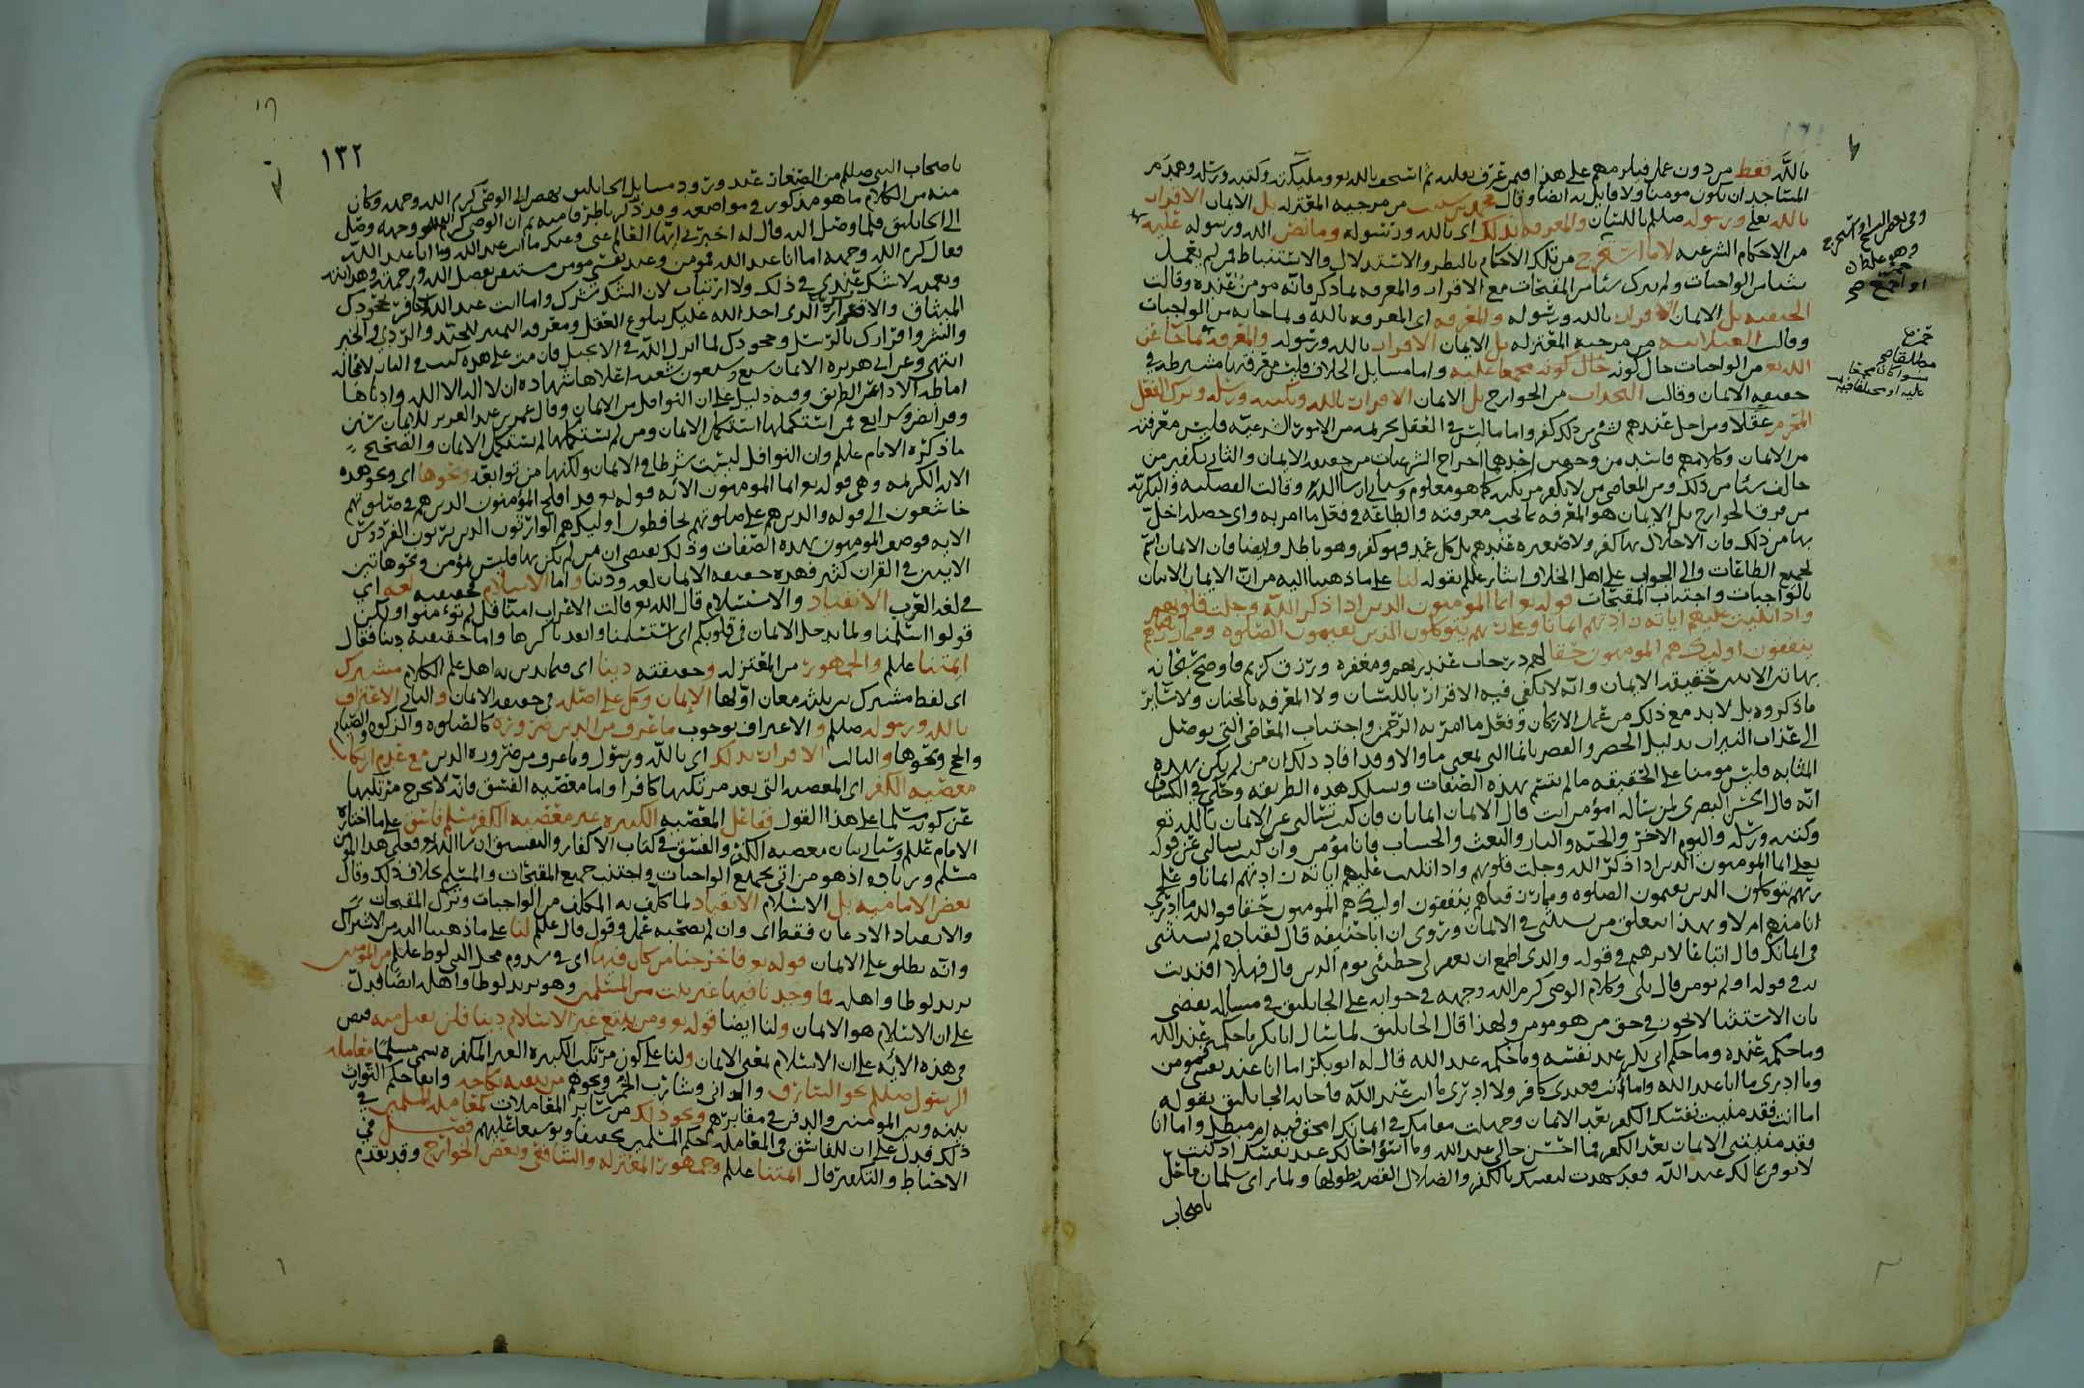 بالله فقط من دون عمل فيلزمهم على هذا فيمن عرف بقلبه ثم استخف بالله تعو وملائكته وكتبه ورسله وهدم
المساجد ان يكون مومنا ولا قايل به ايضا وقال محمد بن شبيب من مرجية المعتزله بل الايمان الاقرار
بالله تعلى ورسوله صللم باللسان والمعرفه بذلك اى بالله ورسوله وما نص الله ورسوله عليه
من الاحكام الشرعيه لا ما استخرج من تلك الاحكام بالنظر والاستدلال والاستنباط فمن لم يفعل
شيا من الواجبات ولم يترك شيا من المقبحات مع الاقرار والمعرفه بما ذكر فانه مومن عنده وقالت
الحنفيه بل الايمان الاقرار بالله ورسوله والمعرفه اى المعرفه بالله وبما جا به من الواجبات
وقالت الغيلانيه من مرجية المعتزله بل الايمان الاقرار بالله ورسوله والمعرفة بما جا عن
الله تعو من الواجبات حال كونه مجمعا عليه واما مسايل الخلاف فليس معرفتها مشترطه في
حقيقه الايمان وقالت النجدات من الخوارج بل الايمان الاقرار بالله وبكتبه ورسله وترك الفعل
المحرم عقلا ومن اخل عندهم بشي من ذلك كفر واما ما ليس في العقل تحريمه من الامور الشرعيه فليس معرفته
من الايمان وكلامهم فاسد من وجهين احدهما اخراج الشرعيات من حقيقه الايمان والثاني تكفير من
خالف شيا من ذلك ومن المعاصي من لا يكفر مرتكبه كما هو معلوم وسياتي ان شا الله وقالت الفضليه والبكريه
من فرق الخوارج بل الايمان هو المعرفه بما يجب معرفته والطاعه في فعل ما امر به واى خصله اخل
بها من ذلك فان الاخلال بها كفر ولا صغيره عندهم بل كل عمد فهو كفر وهو باطل وايضا فان الايمان اسم
لجميع الطاعات والى الجواب على اهل الخلاف اشار عللم بقوله لنا على ما ذهبنا اليه من ان الايمان الاتيان
بالواجبات واجتناب المقبحات قوله تعو انما المومنون الذين اذا ذكر الله وجلت قلوبهم
واذا تليت عليهم اياته زادتهم ايمانا وعلى ربهم يتوكلون الذين يقيمون الصلوه ومما رزقناهم
ينفقون اوليك هم المومنون حقا لهم درجات عند ربهم ومغفره ورزق كريم فاوضح سبحانه
بهاتين الايتين حقيقة الايمان وانه لا يكفي فيه الاقرار باللسان ولا المعرفه بالجنان ولا ساير
ما ذكروه بل لا بد مع ذلك من عمل الاركان وفعل ما امر به الرحمن واجتناب المعاصي التي يوصل
الى عذاب النيران بدليل الحصر والقصر بانما التي بمعنى ما والا وقد افاد ذلك ان من لم يكن بهذه
المثابه فليس مومنا على الحقيقه ما لم يتسم بهذه الصفات ويسلك هذه الطريقه وحكى في الكشاف
انه قال الحسن البصرى لمن ساله امؤمن انت قال الايمان ايمانان فان كنت تسالني عن الايمان بالله تعو
وكتبه ورسله واليوم الاخر والجنه والنار والبعث والحساب فانا مؤمن وان كنت تسالني عن قوله
تعلى انما المومنون الذين اذا ذكر الله وجلت قلوبهم واذا تليت عليهم اياته زادتهم ايمانا وعلى
ربهم يتوكلون الذين يقيمون الصلوه ومما رزقناهم ينفقون اوليك هم المومنون حقا فوالله ما ادرى
انا منهم ام لا وبهذا تتعلق من يستثني في الايمان وروى ان ابا حنيفه قال لقتاده لم تستثني
في ايمانك قال اتباعا لابرهيم في قوله والذى اطمع ان يغفر لى خطيئتي يوم الدين قال فهلا اقتديت
به في قوله اولم تومن قال بلى وكلام الوصى كرم الله وجهه في جوابه على الجاثليق في مسأله يقضي
بان الاستثنا لا يجوز في حق من هو مومن ولهذا قال الجاثليق لما سال ابا بكر ما حكمك عند الله
وما حكمه عنده وما حكم ابى بكر عند نفسه وما حكمه عند الله قال له ابو بكر اما انا عند نفسي فمومن
وما ادرى ما انا عند الله واما انت فعندى كافر ولا ادرى ما انت عند الله فاجابه الجاثليق بقوله
اما انت فقد منيت نفسك الكفر بعد الايمان وجهلت مقامك في ايمانك امحق فيه ام مبطل واما انا
فقد منيتني الايمان بعد الكفر فما احسن حالى عند الله وما اسؤا حالك عند نفسك اذ كنت
لا توقن بما لك عند الله فقد شهدت لنفسك بالكفر والضلال القصه بطولها ولما راى سلمان ما حل
باصحاب
وفي بعض النسخ او استخرج
وهو غلط
او اجمع صح
جميع
مطلقا صح
١٣٢
باصحاب النبي صللم من الصغار عند ورود مسايل الجاثليق نهض الى الوصى كرم الله وجهه وكان
منه من الكلام ما هو مذكور في مواضعه وقد ذكرنا طرفا منه ثم ان الوصى كرم الله وجهه وصل
الى الجاثليق فلما وصل اليه قال له اخبرني ايها العالم عني وعنك ما انت عند الله وما انا عند الله
فقال كرم الله وجهه اما انا عند الله فمومن وعند نفسي مومن متيقن بفضل الله ورحمته وهدايته
ونعمه لا شك عندي في ذلك ولا ارتياب لان الشك شرك واما انت عند الله فكافر بجحودك
الميثاق والاقرار الذى اخذ الله عليك ببلوغ العقل ومعرفه التمييز للجيد والردي والخير
والشر واقرارك بالرسل وجحودك لما انزل الله في الانجيل فان مت على هذه كنت في النار لا محاله
انتهى وعن ابي هريره الايمان بضع وسبعون شعبه اعلاها شهاده ان لا اله الا الله وادناها
اماطه الاذى عن الطريق وفيه دليل على ان النوافل من الايمان وقال عمر بن عبد العزيز للايمان سنن
وفرائض وشرايع فمن استكملها استكمل الايمان ومن لم يستكملها لم يستكمل الايمان والصحيح
ما ذكره الامام عللم وان النوافل ليست شرطا في الايمان ولكنها من توابعه ونحوها اى ونحو هذه
الايه الكريمه وهي قوله تعو انما المومنون الأيه قوله تعو قد افلح المؤمنون الذين هم في صلوتهم
خاشعون الى قوله والذين هم على صلوتهم يحافظون اوليك هم الوارثون الذين يرثون الفردوس
الايه فوصف المومنون بهذه الصفات وذلك يقتضى ان من لم يكن بها فليس بمؤمن ونحو هاتين
الايتين في القران كثير فهذه حقيقه الايمان لغه ودينا واما الاسلام فحقيقته لغه اي
في لغه العرب الانقياد والاستسلام قال الله تعو قالت الاعراب امنا قل لم تؤمنوا ولكن
قولوا اسلمنا ولما يدخل الايمان في قلوبكم اى استسلمنا وانقدنا كرها واما حقيقته دينا فقال
ايمتنا عللم والجمهور من المعتزله وحقيقته دينا اى فيما يدين به اهل علم الكلام مشترك
اى لفظ مشترك بين ثلثه معان اولها الإيمان وكل على اصله في حقيقه الايمان والثاني الاعتراف
بالله ورسوله صللم والاعتراف بوجوب ما عرف من الدين ضروره كالصلوه والزكوه والصيام
والحج ونحوها والثالث الاقرار بذلك اى بالله ورسوله وما عرف من ضروره الدين مع عدم ارتكاب
معصيه الكفر اى المعصيه التي يعد مرتكبها كافرا واما معصيه الفسق فانه لا يخرج مرتكبها
عن كونه مسلما على هذا القول ففاعل المعصيه الكبيره غير معصيه الكفر مسلم فاسق على ما اختاره
الامام عللم وسياتي بيان معصيه الكفر والفسق في كتاب الاكفار والتفسيق ان شا الله تعو فعلى هذا المؤمن
مسلم وزياده اذ هو من اتى بجميع الواجبات واجتنب جميع المقبحات والمسلم بخلاف ذلك وقال
بعض الاماميه بل الاسلام الانقياد لما كلف به المكلف من الواجبات وترك المقبحات
والانقياد الاذعان فقط اى وان لم يصحبه عمل وقول قال عللم لنا على ما ذهبنا اليه من الاشتراك
وانه يطلق على الايمان قوله تعو فاخرجنا من كان فيها اى في سدوم محل النبي لوط عللم من المؤمنين
يريد لوطا واهله فما وجدنا فيها غير بيت من المسلمين وهو يريد لوطا واهله ايضا فدل
على ان الاسلام هو الايمان ولنا ايضا قوله تعو ومن يبتغ غير الاسلام دينا فلن يقبل منه فنص
في هذه الأيه على ان الاسلام بمعنى الايمان ولنا على كون مرتكب الكبيره الغير المكفره يسمى مسلما معامله
الرسول صللم نحو السارق والزاني وشارب الخمر ونحوهم من تبقيه نكاحه وابقا حكم التوارث
بينه وبين المومنين والدفن في مقابرهم ونحو ذلك من ساير المعاملات كمعاملة المسلمين في
ذلك فدل على ان للفاسق في المعامله حكم المسلمين تخفيفا وتوسيعا عليهم فصل في
الاحباط والتكفير قال ايمتنا عللم وجمهور المعتزله والشافعي وبعض الخوارج وقد تقدم